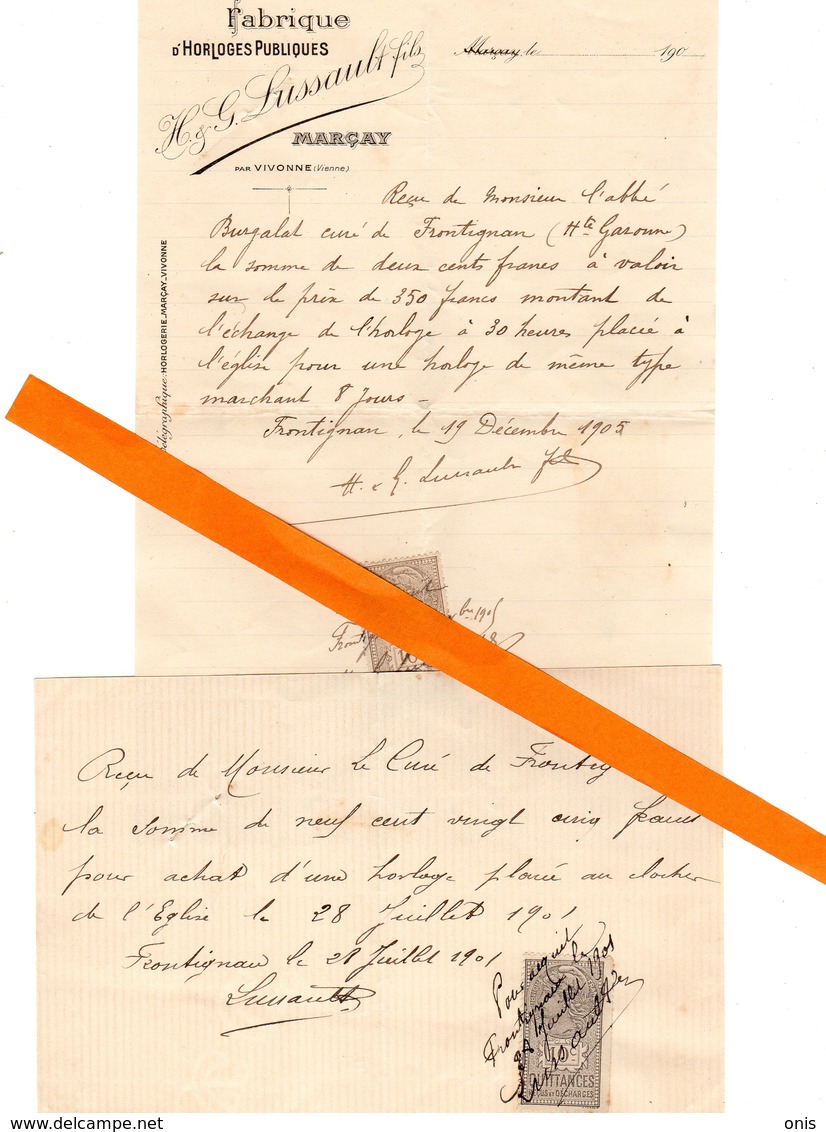 Fabrique
D'HORLOGES PUBLIQUES
H. & G. Lussault fils
MARÇAY
PAR VIVONNE (Vienne)
Marçay le 190
télégraphique: HORLOGERIE_MARÇAY_VIVONNE
Reçu de Monsieur l'abbé
Burgalat curé de Frontignan (Hte Garonne)
la somme de deux cents francs à valoir
sur le prix de 350 francs montant de
l'échange de l'horloge à 30 heures placée à
l'église pour une horloge de même type
marchant 8 jours –
Frontignan, le 19 Décembre 1905
H. & G. Lussault fils
bre 1905
Reçu de Monsieur Le Curé de Frontig
la somme de neuf cent vingt cinq francs
pour achat d'une horloge placée au clocher
de l'Eglise le 28 Juillet 1901
Frontignan le 28 Juillet 1901
Lussault
Pour acquit
Frontignan le
28 Juillet 1901
Lussault
QUITTANCES
REÇUS ET DÉCHARGES
onis